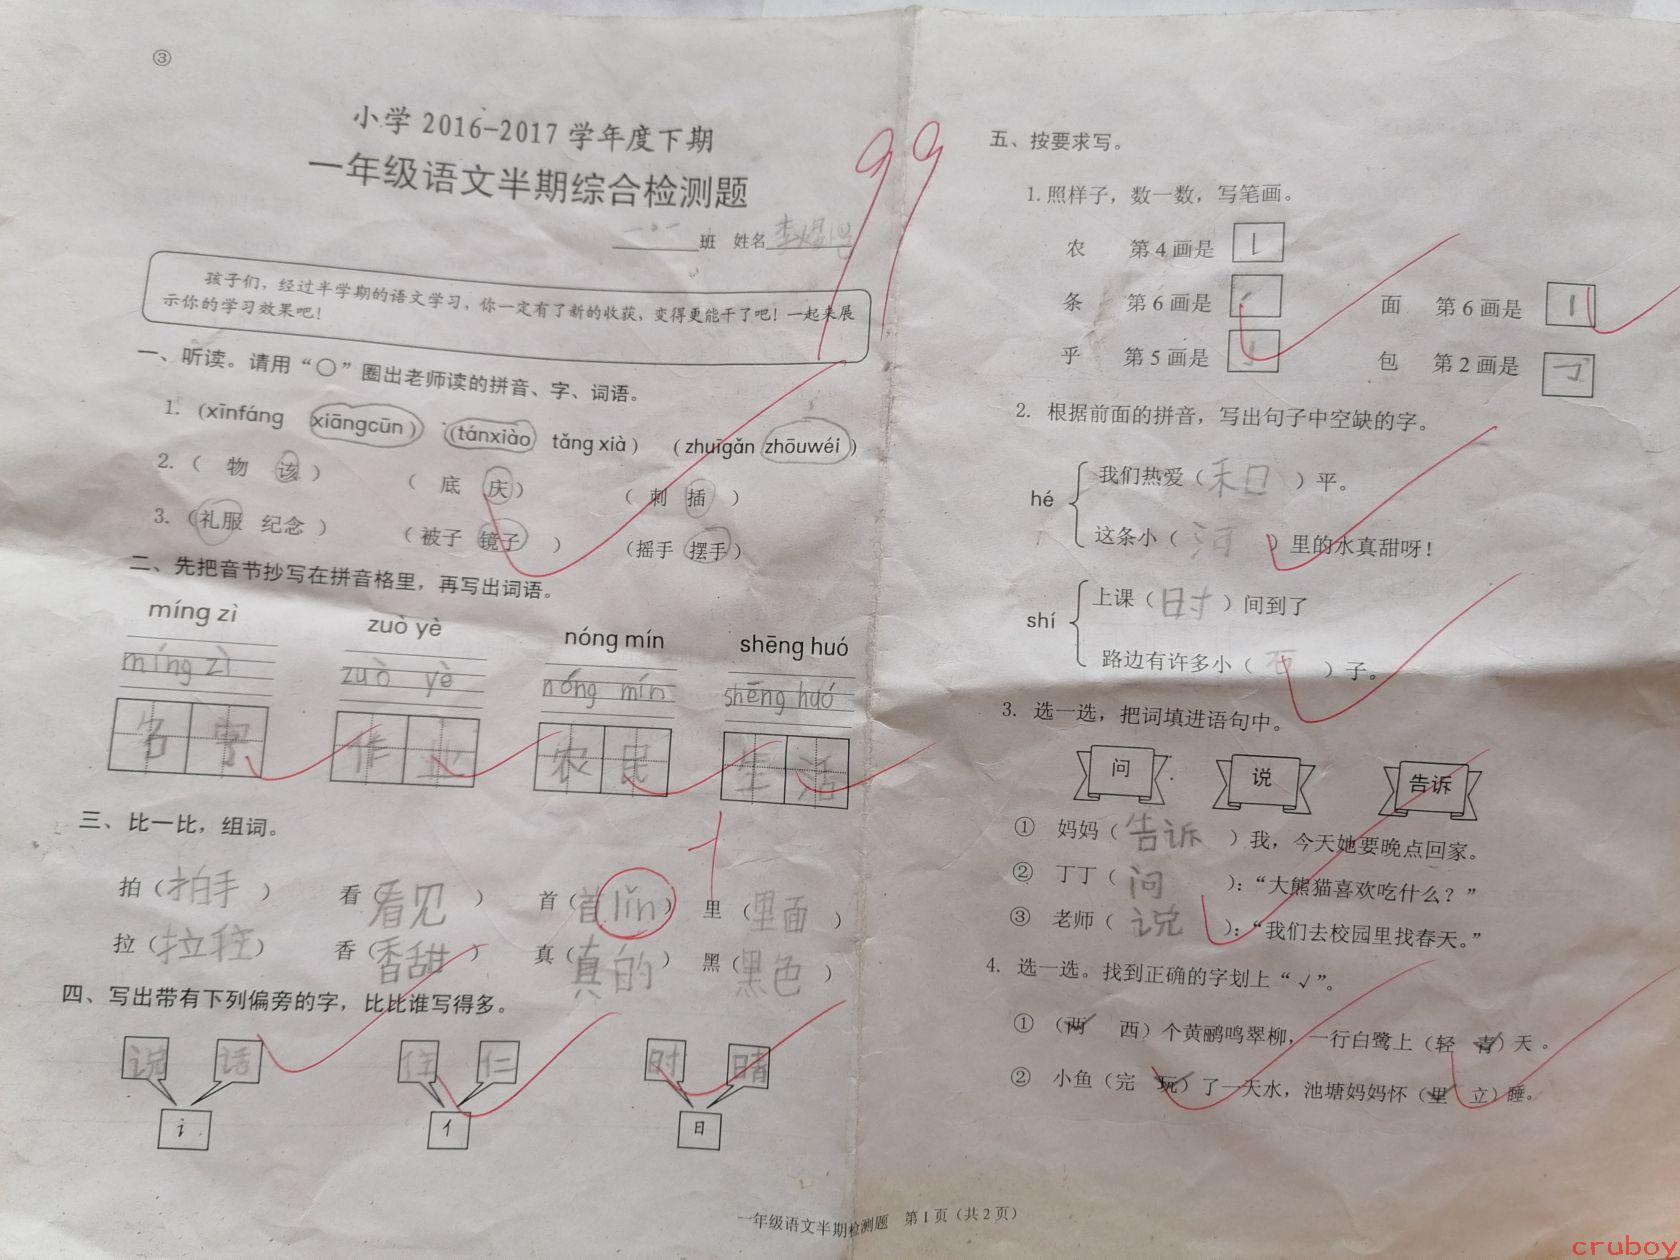 ③
小学 2016-2017 学年度下期
一年级语文半期综合检测题
99
班 姓名
孩子们，经过半学期的语文学习，你一定有了新的收获，变得更能干了吧！一起来展
示你的学习效果吧！
一、听读。请用“○”圈出老师读的拼音、字、词语。
1. (xīnfáng xiāngcūn) (tánxiào tǎng xià) (zhuīgǎn zhōuwéi)
2.（ 物 该 ） （ 底 庆 ） （ 刺 插 ）
3.（礼服 纪念 ） （被子 镜子 ） （摇手 摆手）
二、先把音节抄写在拼音格里，再写出词语。
míng zì zuò yè nóng mín shēng huó
míng zì zuò yè nóng mín shēng huó
名字 作业 农民 生活
三、比一比，组词。
拍（拍手） 看（看见） 首（首lǐn） 里（里面）
拉（拉住） 香（香甜） 真（真的） 黑（黑色）
四、写出带有下列偏旁的字，比比谁写得多。
说 话 住 仁 时 晴
讠 亻 日
五、按要求写。
1.照样子，数一数，写笔画。
农 第 4 画是
条 第 6 画是 面 第 6 画是 丨
乎 第 5 画是 亅 包 第 2 画是
2. 根据前面的拼音，写出句子中空缺的字。
hé 我们热爱（和）平。
这条小（河）里的水真甜呀！
shí 上课（时）间到了
路边有许多小（石）子。
3. 选一选，把词填进语句中。
问 说 告诉
① 妈妈（告诉）我，今天她要晚点回家。
② 丁丁（问）：“大熊猫喜欢吃什么？”
③ 老师（说）：“我们去校园里找春天。”
4. 选一选。找到正确的字划上“√”。
①（两 西）个黄鹂鸣翠柳，一行白鹭上（轻 青）天 。
② 小鱼（完 玩）了一天水，池塘妈妈怀（里 立）睡。
一年级语文半期检测题 第 1 页（共 2 页）
cruboy